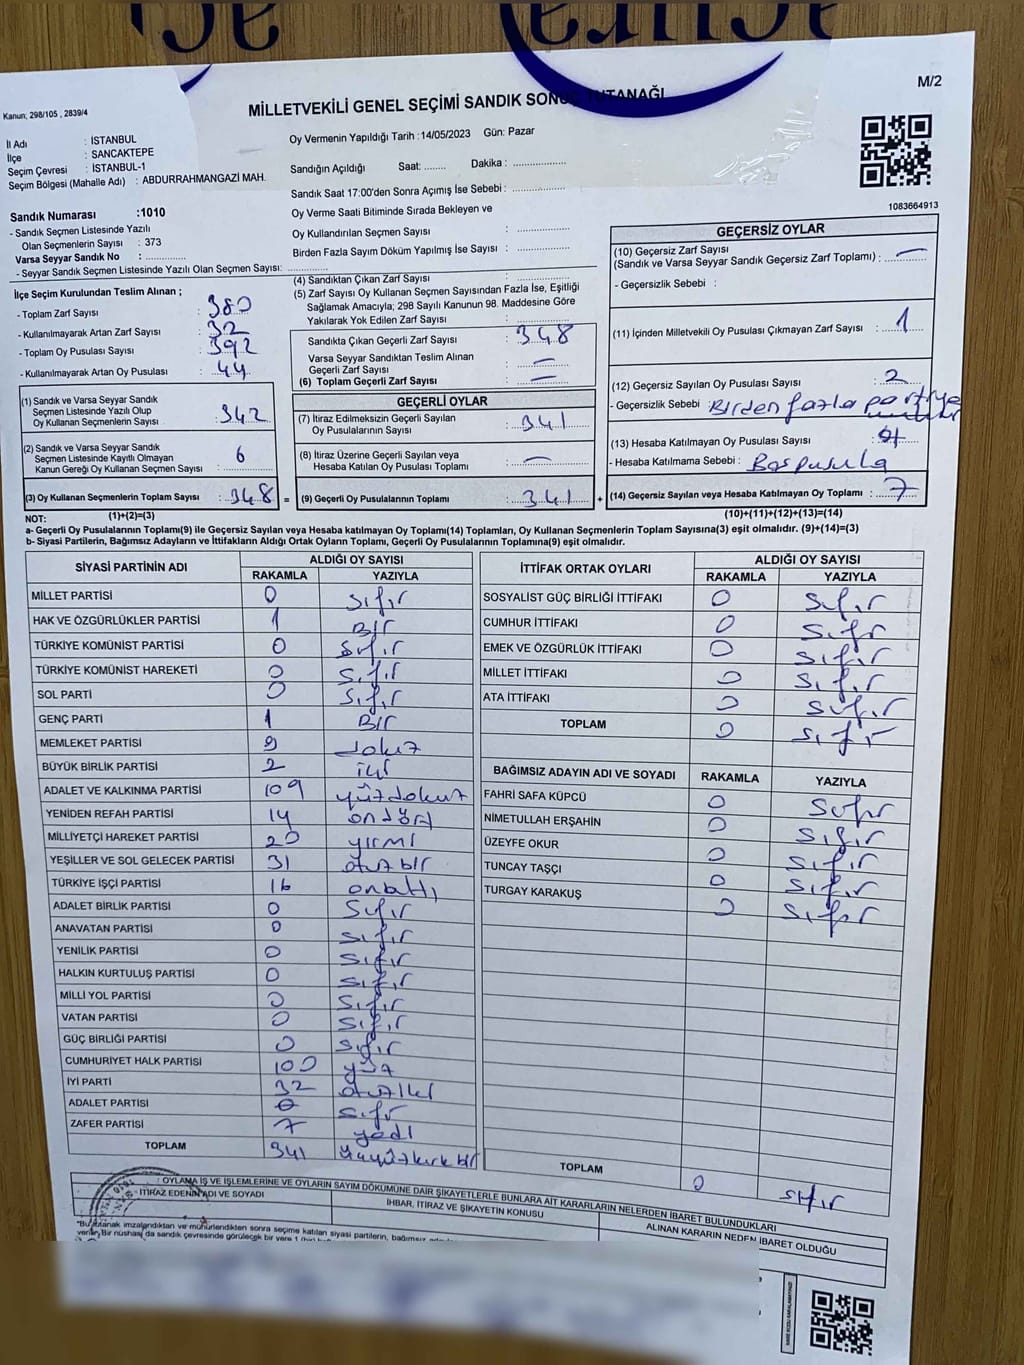 M/2
MİLLETVEKİLİ GENEL SEÇİMİ SANDIK SONUÇ TUTANAĞI
Kanun; 298/105 , 2839/4
İl Adı : İSTANBUL
İlçe : SANCAKTEPE
Seçim Çevresi : İSTANBUL-1
Seçim Bölgesi (Mahalle Adı) : ABDURRAHMANGAZİ MAH.
Oy Vermenin Yapıldığı Tarih :14/05/2023 Gün: Pazar
Sandığın Açıldığı Saat: ........ Dakika : ...................
Sandık Saat 17:00'den Sonra Açımış İse Sebebi : ...................
Oy Verme Saati Bitiminde Sırada Bekleyen ve
Oy Kullandırılan Seçmen Sayısı : ...................
Birden Fazla Sayım Döküm Yapılmış İse Sayısı : ...................
1083664913
Sandık Numarası :1010
- Sandık Seçmen Listesinde Yazılı
Olan Seçmenlerin Sayısı : 373
Varsa Seyyar Sandık No : ..............
- Seyyar Sandık Seçmen Listesinde Yazılı Olan Seçmen Sayısı: ..............
İlçe Seçim Kurulundan Teslim Alınan ;
- Toplam Zarf Sayısı : 380
- Kullanılmayarak Artan Zarf Sayısı : 32
- Toplam Oy Pusulası Sayısı : 392
- Kullanılmayarak Artan Oy Pusulası : 44
(1) Sandık ve Varsa Seyyar Sandık
Seçmen Listesinde Yazılı Olup
Oy Kullanan Seçmenlerin Sayısı : 342
(2) Sandık ve Varsa Seyyar Sandık
Seçmen Listesinde Kayıtlı Olmayan
Kanun Gereği Oy Kullanan Seçmen Sayısı : 6
(3) Oy Kullanan Seçmenlerin Toplam Sayısı : 348 =
(4) Sandıktan Çıkan Zarf Sayısı : ..............
(5) Zarf Sayısı Oy Kullanan Seçmen Sayısından Fazla İse, Eşitliği
Sağlamak Amacıyla; 298 Sayılı Kanunun 98. Maddesine Göre
Yakılarak Yok Edilen Zarf Sayısı : ..............
Sandıkta Çıkan Geçerli Zarf Sayısı : 348
Varsa Seyyar Sandıktan Teslim Alınan
Geçerli Zarf Sayısı : —
(6) Toplam Geçerli Zarf Sayısı : —
GEÇERLİ OYLAR
(7) İtiraz Edilmeksizin Geçerli Sayılan
Oy Pusulalarının Sayısı : 341
(8) İtiraz Üzerine Geçerli Sayılan veya
Hesaba Katılan Oy Pusulası Toplamı : —
(9) Geçerli Oy Pusulalarının Toplamı : 341 +
GEÇERSİZ OYLAR
(10) Geçersiz Zarf Sayısı
(Sandık ve Varsa Seyyar Sandık Geçersiz Zarf Toplamı) : —
- Geçersizlik Sebebi :
(11) İçinden Milletvekili Oy Pusulası Çıkmayan Zarf Sayısı : 1
(12) Geçersiz Sayılan Oy Pusulası Sayısı : 2
- Geçersizlik Sebebi : Birden fazla partiye
(13) Hesaba Katılmayan Oy Pusulası Sayısı :
- Hesaba Katılmama Sebebi : Boş pusula
(14) Geçersiz Sayılan veya Hesaba Katılmayan Oy Toplamı : 7
NOT: (1)+(2)=(3) (10)+(11)+(12)+(13)=(14)
a- Geçerli Oy Pusulalarının Toplamı(9) ile Geçersiz Sayılan veya Hesaba katılmayan Oy Toplamı(14) Toplamları, Oy Kullanan Seçmenlerin Toplam Sayısına(3) eşit olmalıdır. (9)+(14)=(3)
b- Siyasi Partilerin, Bağımsız Adayların ve İttifakların Aldığı Ortak Oyların Toplamı, Geçerli Oy Pusulalarının Toplamına(9) eşit olmalıdır.
SİYASİ PARTİNİN ADI ALDIĞI OY SAYISI
RAKAMLA YAZIYLA
MİLLET PARTİSİ 0 sıfır
HAK VE ÖZGÜRLÜKLER PARTİSİ 1 Bir
TÜRKİYE KOMÜNİST PARTİSİ 0 sıfır
TÜRKİYE KOMÜNİST HAREKETİ 0 sıfır
SOL PARTİ 0 sıfır
GENÇ PARTİ 1 Bir
MEMLEKET PARTİSİ 9 dokuz
BÜYÜK BİRLİK PARTİSİ 2 iki
ADALET VE KALKINMA PARTİSİ 109 yüzdokuz
YENİDEN REFAH PARTİSİ 14 ondört
MİLLİYETÇİ HAREKET PARTİSİ 20 yirmi
YEŞİLLER VE SOL GELECEK PARTİSİ 31 otuzbir
TÜRKİYE İŞÇİ PARTİSİ 16 onaltı
ADALET BİRLİK PARTİSİ 0 sıfır
ANAVATAN PARTİSİ 0 sıfır
YENİLİK PARTİSİ 0 sıfır
HALKIN KURTULUŞ PARTİSİ 0 sıfır
MİLLİ YOL PARTİSİ 0 sıfır
VATAN PARTİSİ 0 sıfır
GÜÇ BİRLİĞİ PARTİSİ 0 sıfır
CUMHURİYET HALK PARTİSİ 100 yüz
İYİ PARTİ 32 otuziki
ADALET PARTİSİ 0 sıfır
ZAFER PARTİSİ 7 yedi
TOPLAM 341 üçyüzkırkbir
İTTİFAK ORTAK OYLARI ALDIĞI OY SAYISI
RAKAMLA YAZIYLA
SOSYALİST GÜÇ BİRLİĞİ İTTİFAKI 0 sıfır
CUMHUR İTTİFAKI 0 sıfır
EMEK VE ÖZGÜRLÜK İTTİFAKI 0 sıfır
MİLLET İTTİFAKI 0 sıfır
ATA İTTİFAKI 0 sıfır
TOPLAM 0 sıfır
BAĞIMSIZ ADAYIN ADI VE SOYADI RAKAMLA YAZIYLA
FAHRİ SAFA KÜPCÜ 0 sıfır
NİMETULLAH ERŞAHİN 0 sıfır
ÜZEYFE OKUR 0 sıfır
TUNCAY TAŞÇI 0 sıfır
TURGAY KARAKUŞ 0 sıfır
TOPLAM 0 sıfır
: OYLAMA İŞ VE İŞLEMLERİNE VE OYLARIN SAYIM DÖKÜMÜNE DAİR ŞİKAYETLERLE BUNLARA AİT KARARLARIN NELERDEN İBARET BULUNDUKLARI
İTİRAZ EDENİN ADI VE SOYADI
İHBAR, İTİRAZ VE ŞİKAYETİN KONUSU
ALINAN KARARIN NEDEN İBARET OLDUĞU
"Bu tutanak imzalandıktan ve mühürlendikten sonra seçime katılan siyasi partilerin, bağımsız